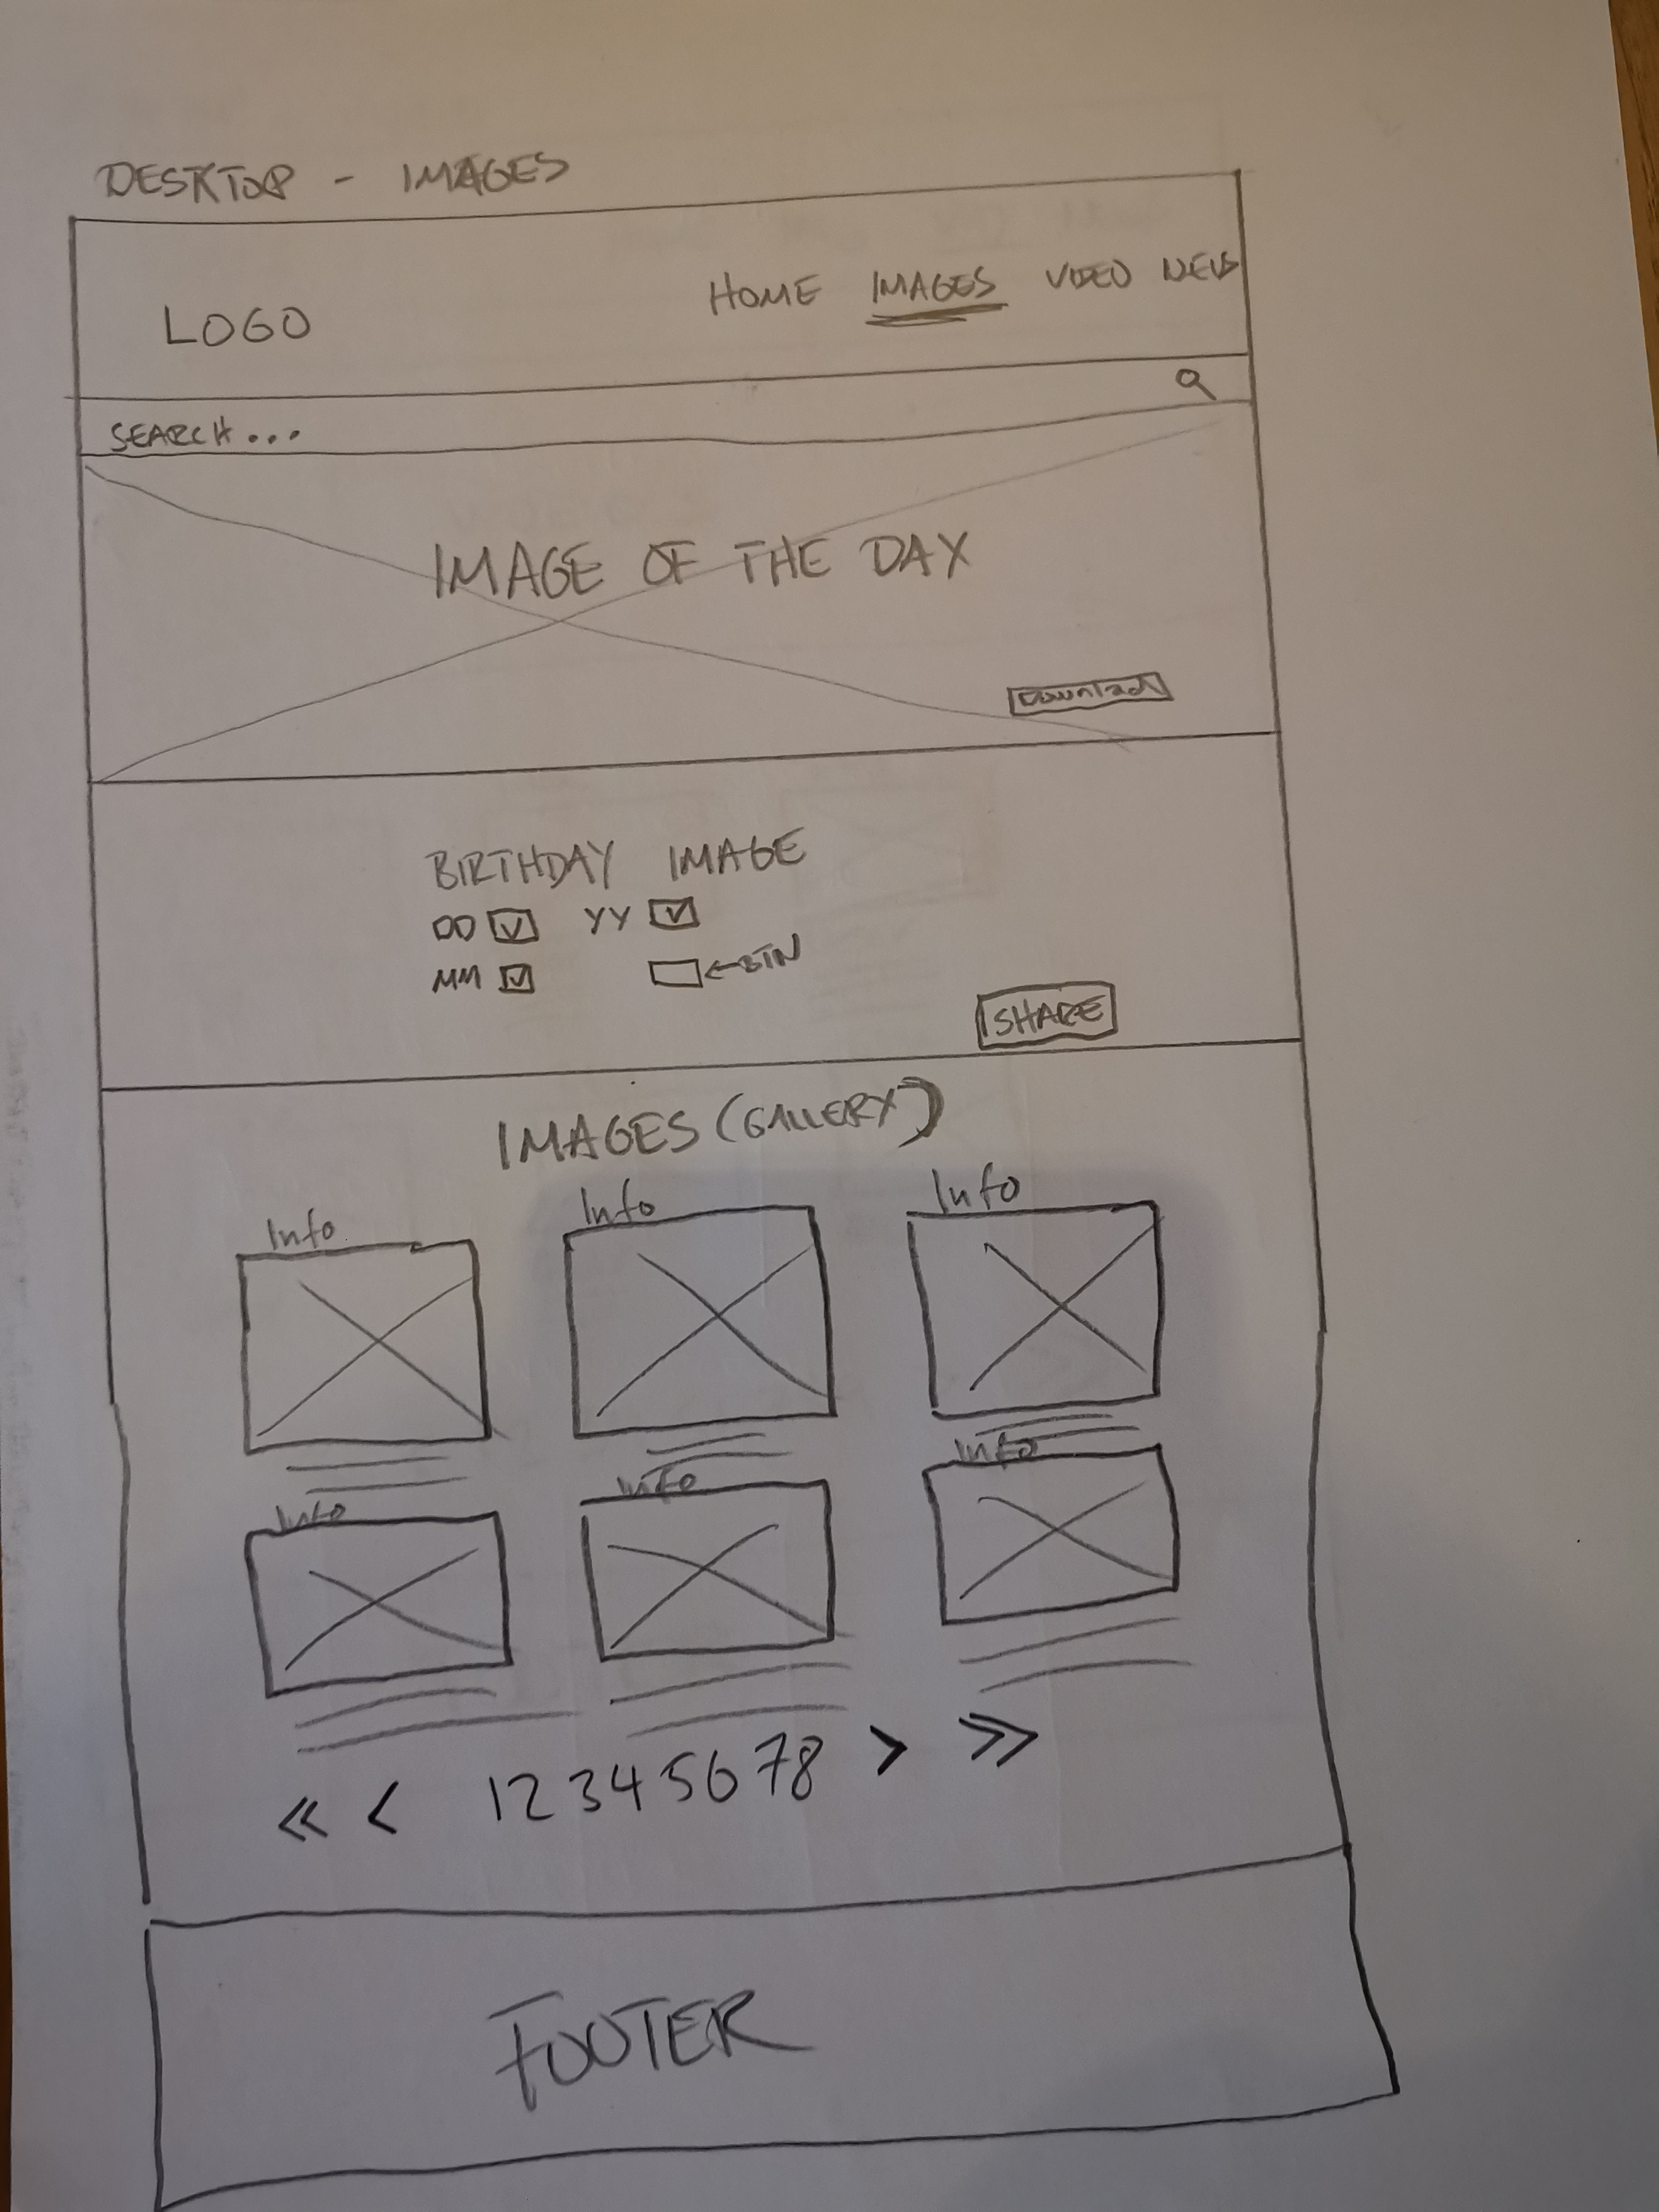 DESKTOP - IMAGES
LOGO HOME IMAGES VIDEO NEWS
SEARCH...
IMAGE OF THE DAY
Download
BIRTHDAY IMAGE
DD YY
MM ←BTN
SHARE
IMAGES (GALLERY)
Info Info Info
Info Info Info
« < 1 2 3 4 5 6 7 8 > »
FOOTER